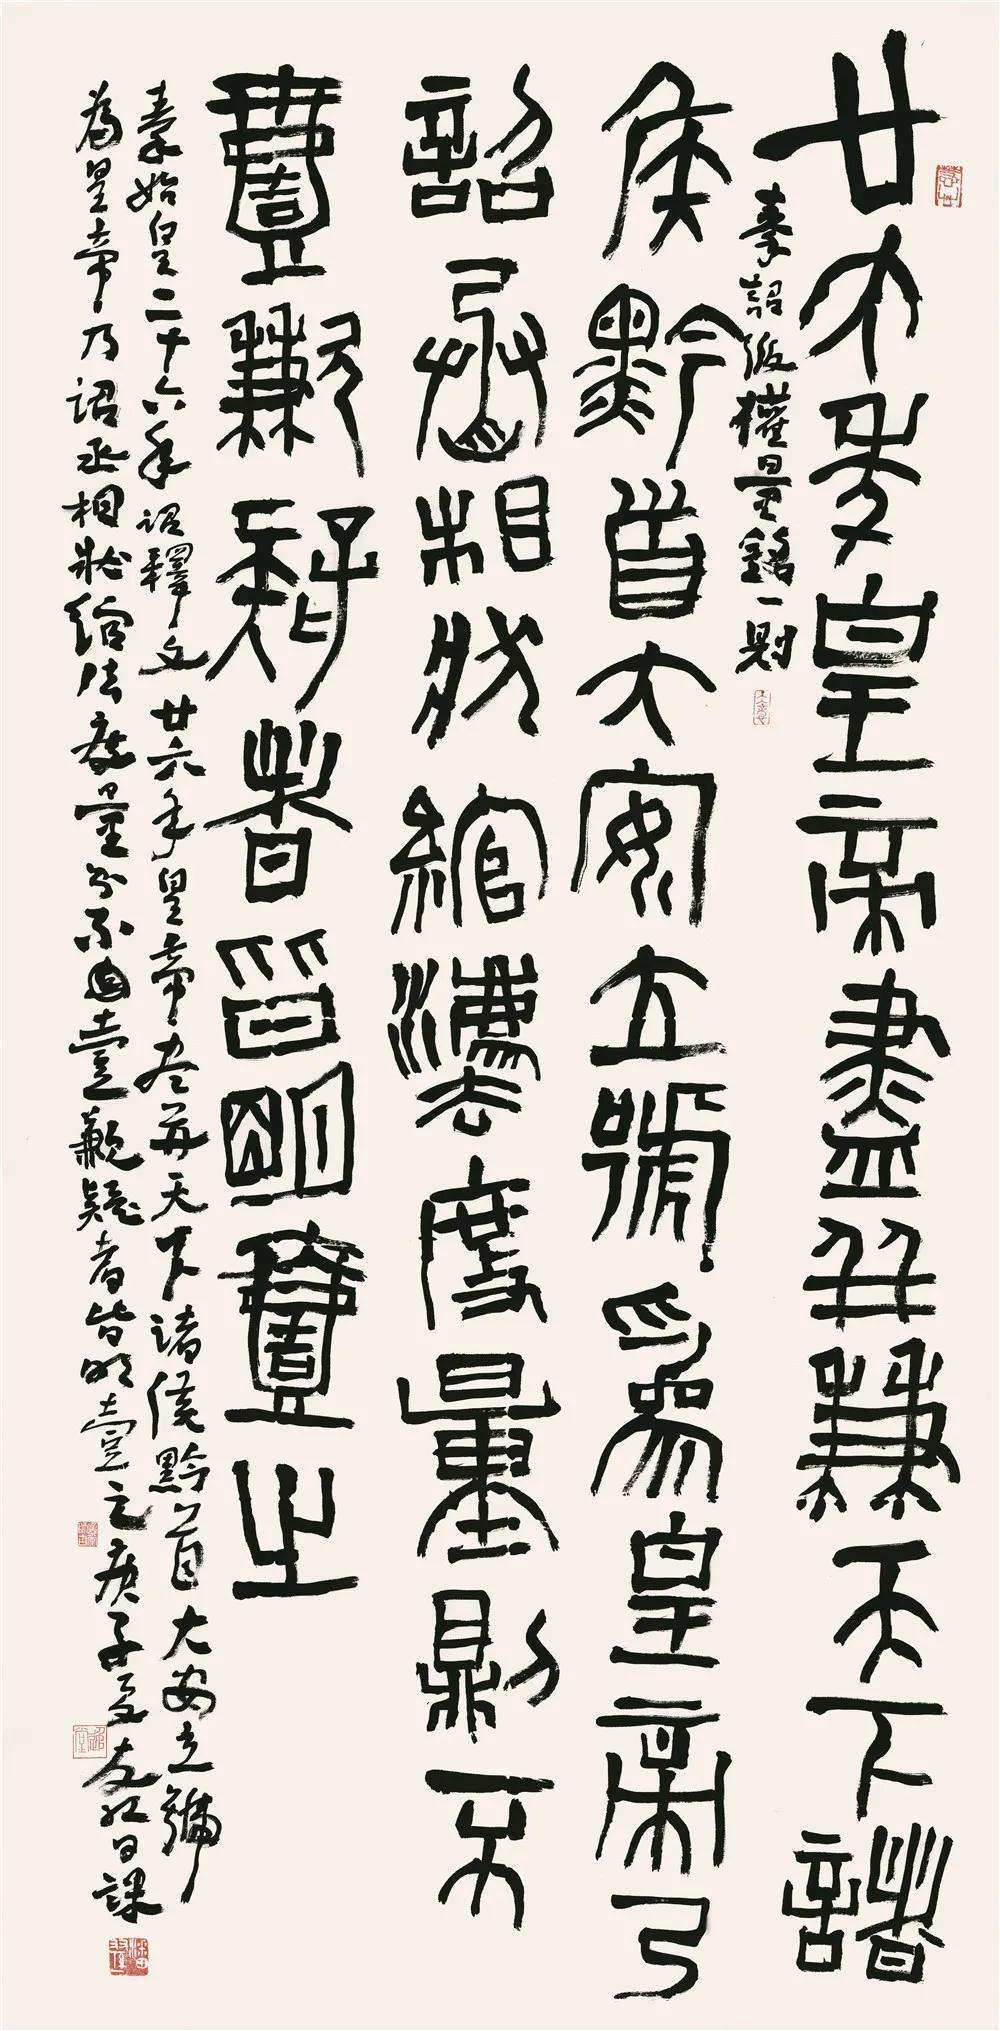 廿六年皇帝盡并兼天下諸
秦詔版權量銘一則
侯黔首大安立號為皇帝乃
詔丞相狀綰灋度量則不
壹歉疑者皆明壹之
秦始皇二十六年詔釋文廿六年皇帝尽并天下諸侯黔首大安立號
為皇帝乃詔丞相狀綰法度量則不壹歉疑者皆明壹之庚子夏友红日課